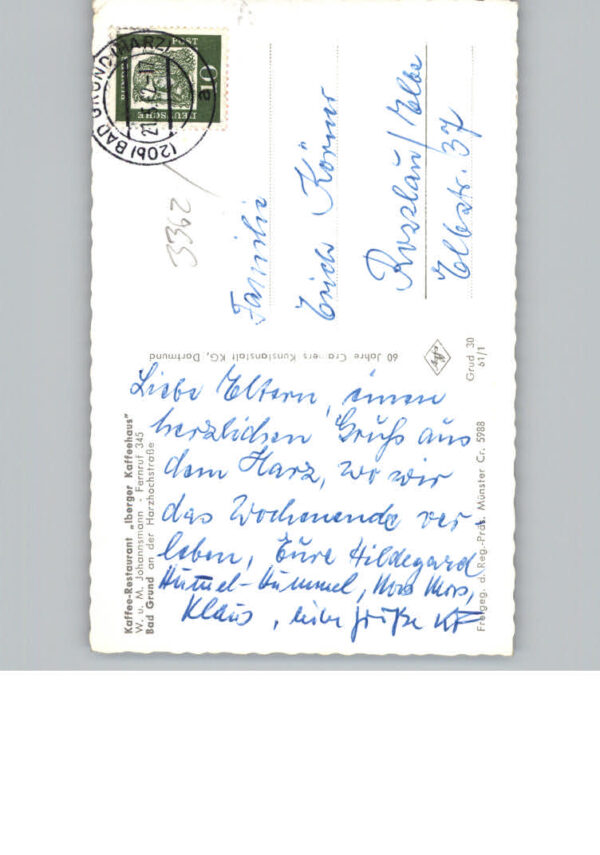 (20b) BAD GRUND (HARZ)
a
DEUTSCHE
POST
10
3362
Familie
Erich Körner
Rosslau/Elbe
Elbstr. 37
60 Jahre Cramers Kunstanstalt KG, Dortmund
Grud 30
61/1
Freigeg. d. Reg.-Präs. Münster Cr. 5988
Kaffee-Restaurant „Iberger Kaffeehaus"
W. u. M. Johannsmann - Fernruf 345
Bad Grund an der Harzhochstraße
Liebe Eltern, einen
herzlichen Gruß aus
dem Harz, wo wir
das Wochenende ver-
leben, Eure Hildegard
Hummel-Hummel, Mors Mors,
Klaus, liebe Grüße